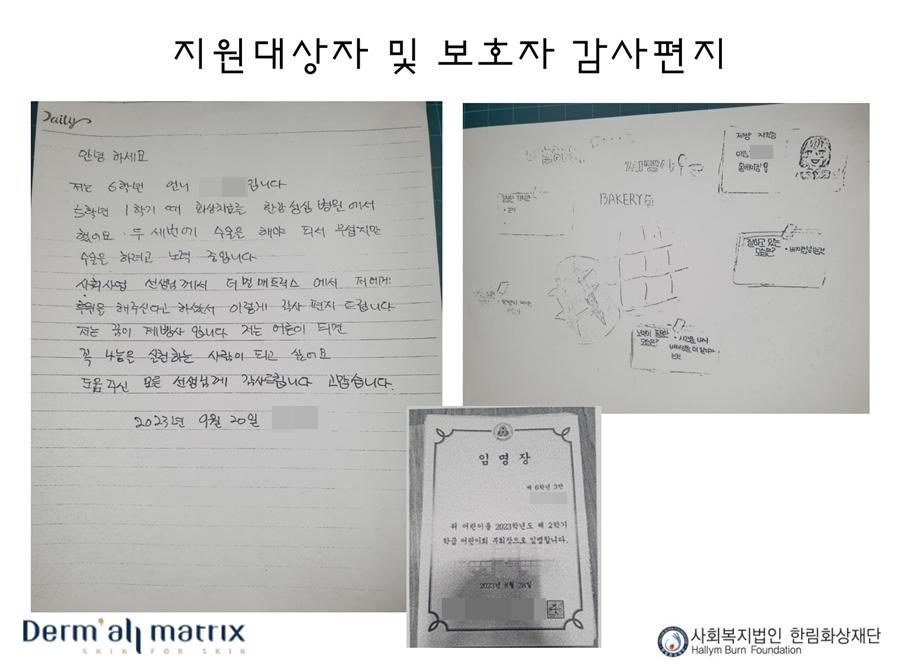 지원대상자 및 보호자 감사편지
Daily
안녕 하세요
저는 6학년 언니 입니다
5학년 1학기 때 화상치료를 한강성심 병원에서
했어요 두 세번에 수술은 해야 되서 무섭지만
수술은 하려고 노력 중입니다
사회사업 선생님께서 더멀매트릭스 에서 저에게
후원을 해주신다고 하셔서 이렇게 감사 편지 드립니다
저는 꿈이 제빵사 입니다 저는 어른이 되면
꼭 나눔은 실천하는 사람이 되고 싶어요
도움주신 모든 선생님께 감사드립니다 고맙습니다.
2023년 9월 20일
BAKERY
이름
잘하고 있는
모습은?
임명장
제 6학년 3반
위 어린이를 2023학년도 제 2학기
학급 어린이회 부회장으로 임명합니다.
2023년 8월 28일
Derm'all matrix
SKIN FOR SKIN
사회복지법인 한림화상재단
Hallym Burn Foundation